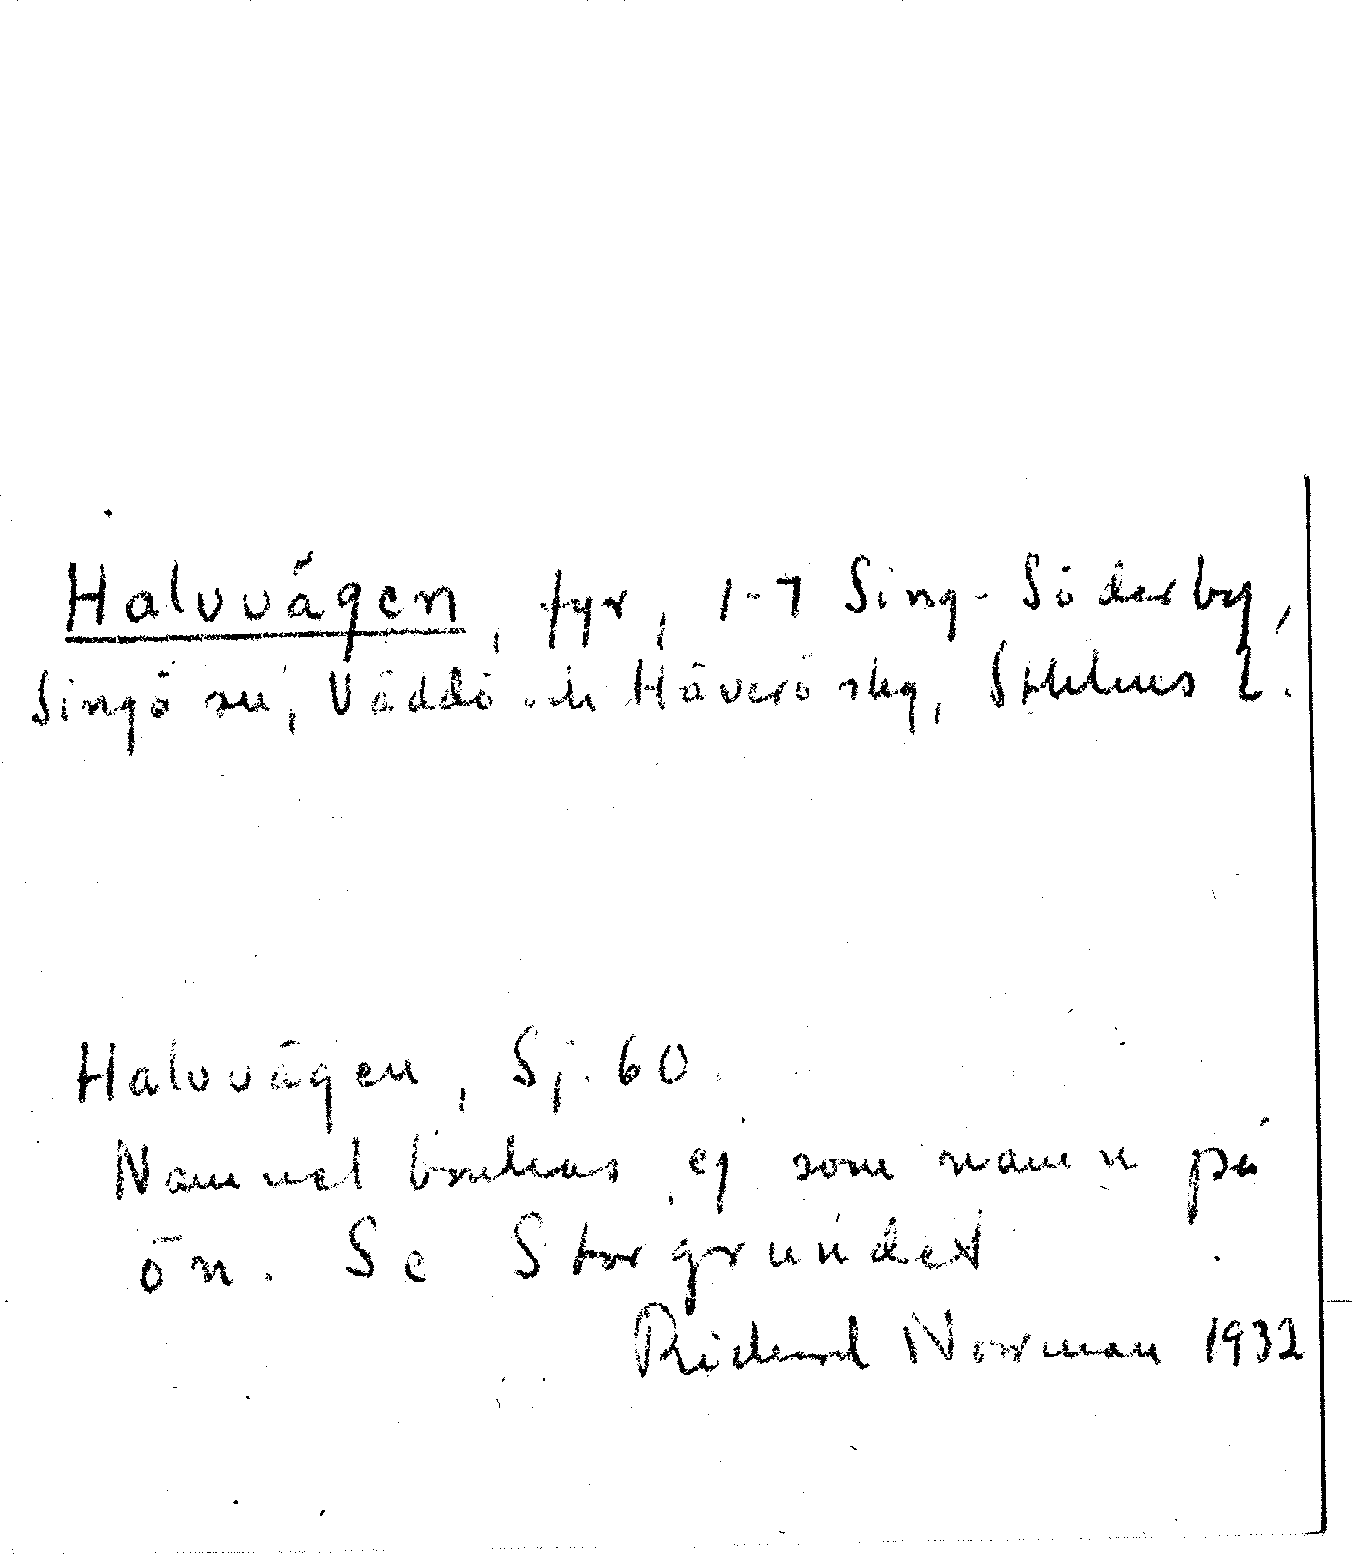 Halvvägen, fyr, 1-7 Sing-Söderby,
Singö sn, Väddö och Häverö skg, Sthlms l.
Halvvägen, Sj. 60.
Namnet brukas ej som namn på
ön. Se Storgrundet
Richard Norrman 1932